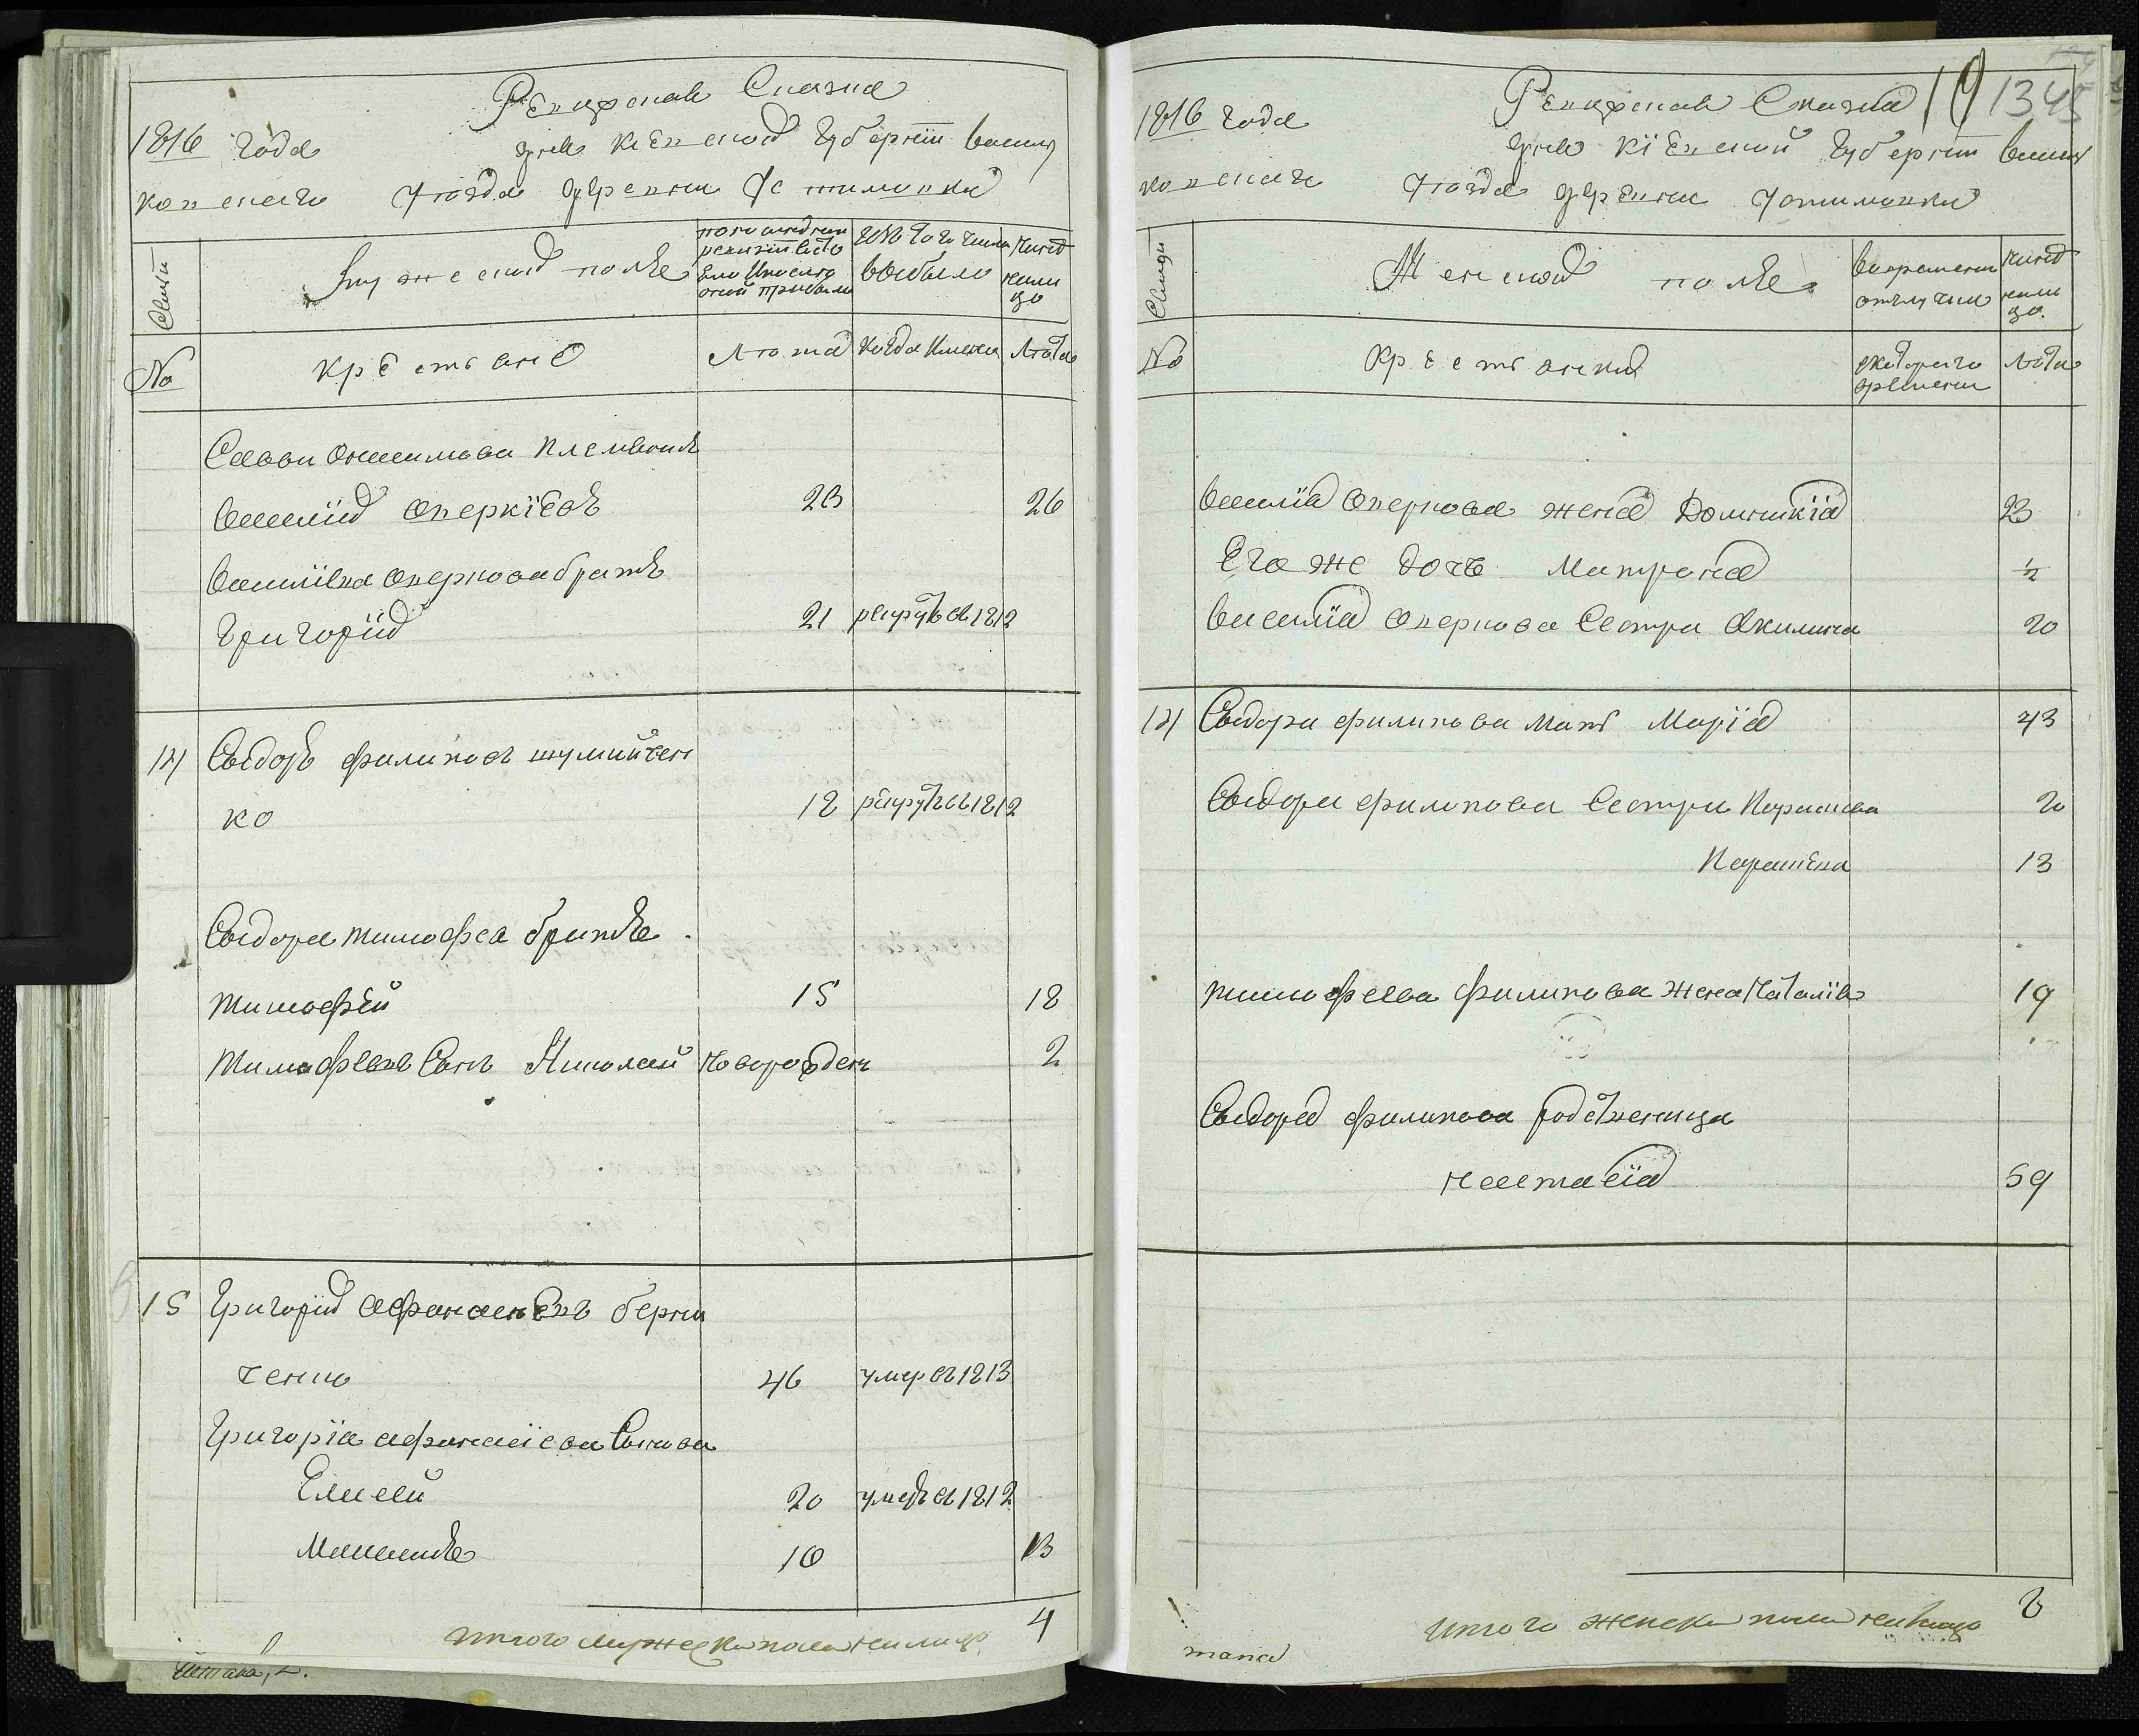 Ревизская Сказка
1816 года
дня Кіевской губерніи васил
ковскаго уезда деревни Устимовки
Семьи
Мужеской полъ
по последней ревизіи состояло и после оной прибыло
изъ того числа выбыло
ныне на лицо
№
Крестьяне
Лета
когда именно
Лета
Саввы Онисимова племянник
Василій Оверкіевъ 23 26
Василія Оверкова братъ
Григорій 21 рекрутъ въ 1812
14 Сидоръ Филиповъ шумийчен
ко 18 рекрутъ въ 1812
Сидора Тимофея братъ
Тимофей 15 18
Тимофеевъ Сынъ Николай новорожден 2
15 Григорій Афанасіевъ берни
ченко 46 умер въ 1813
Григорія Афанасіева Сынова
Елисей 20 умеръ въ 1812
Максимъ 10 13
итого мужеска пола на лицо 4
Ревизская Сказка
19 1345
1816 года
дня Кіевской губерніи васил
ковскаго уезда деревни Устимовки
Семьи
Женской полъ
во временной отлучке
ныне на лицо
№
Крестьянки
с котораго времени
Лета
Василія Оверкова жена Домникія 23
Его же дочь Матрона ½
Василія Оверкова Сестра Акилина 20
14 Сидора Филипова мать Марія 43
Сидора Филипова Сестра Параскева 20
Параскева 13
Тимофеева Филипова жена Наталія 19
Сидора Филипова родственица
Настасія 59
итого женска пола на лицо 8